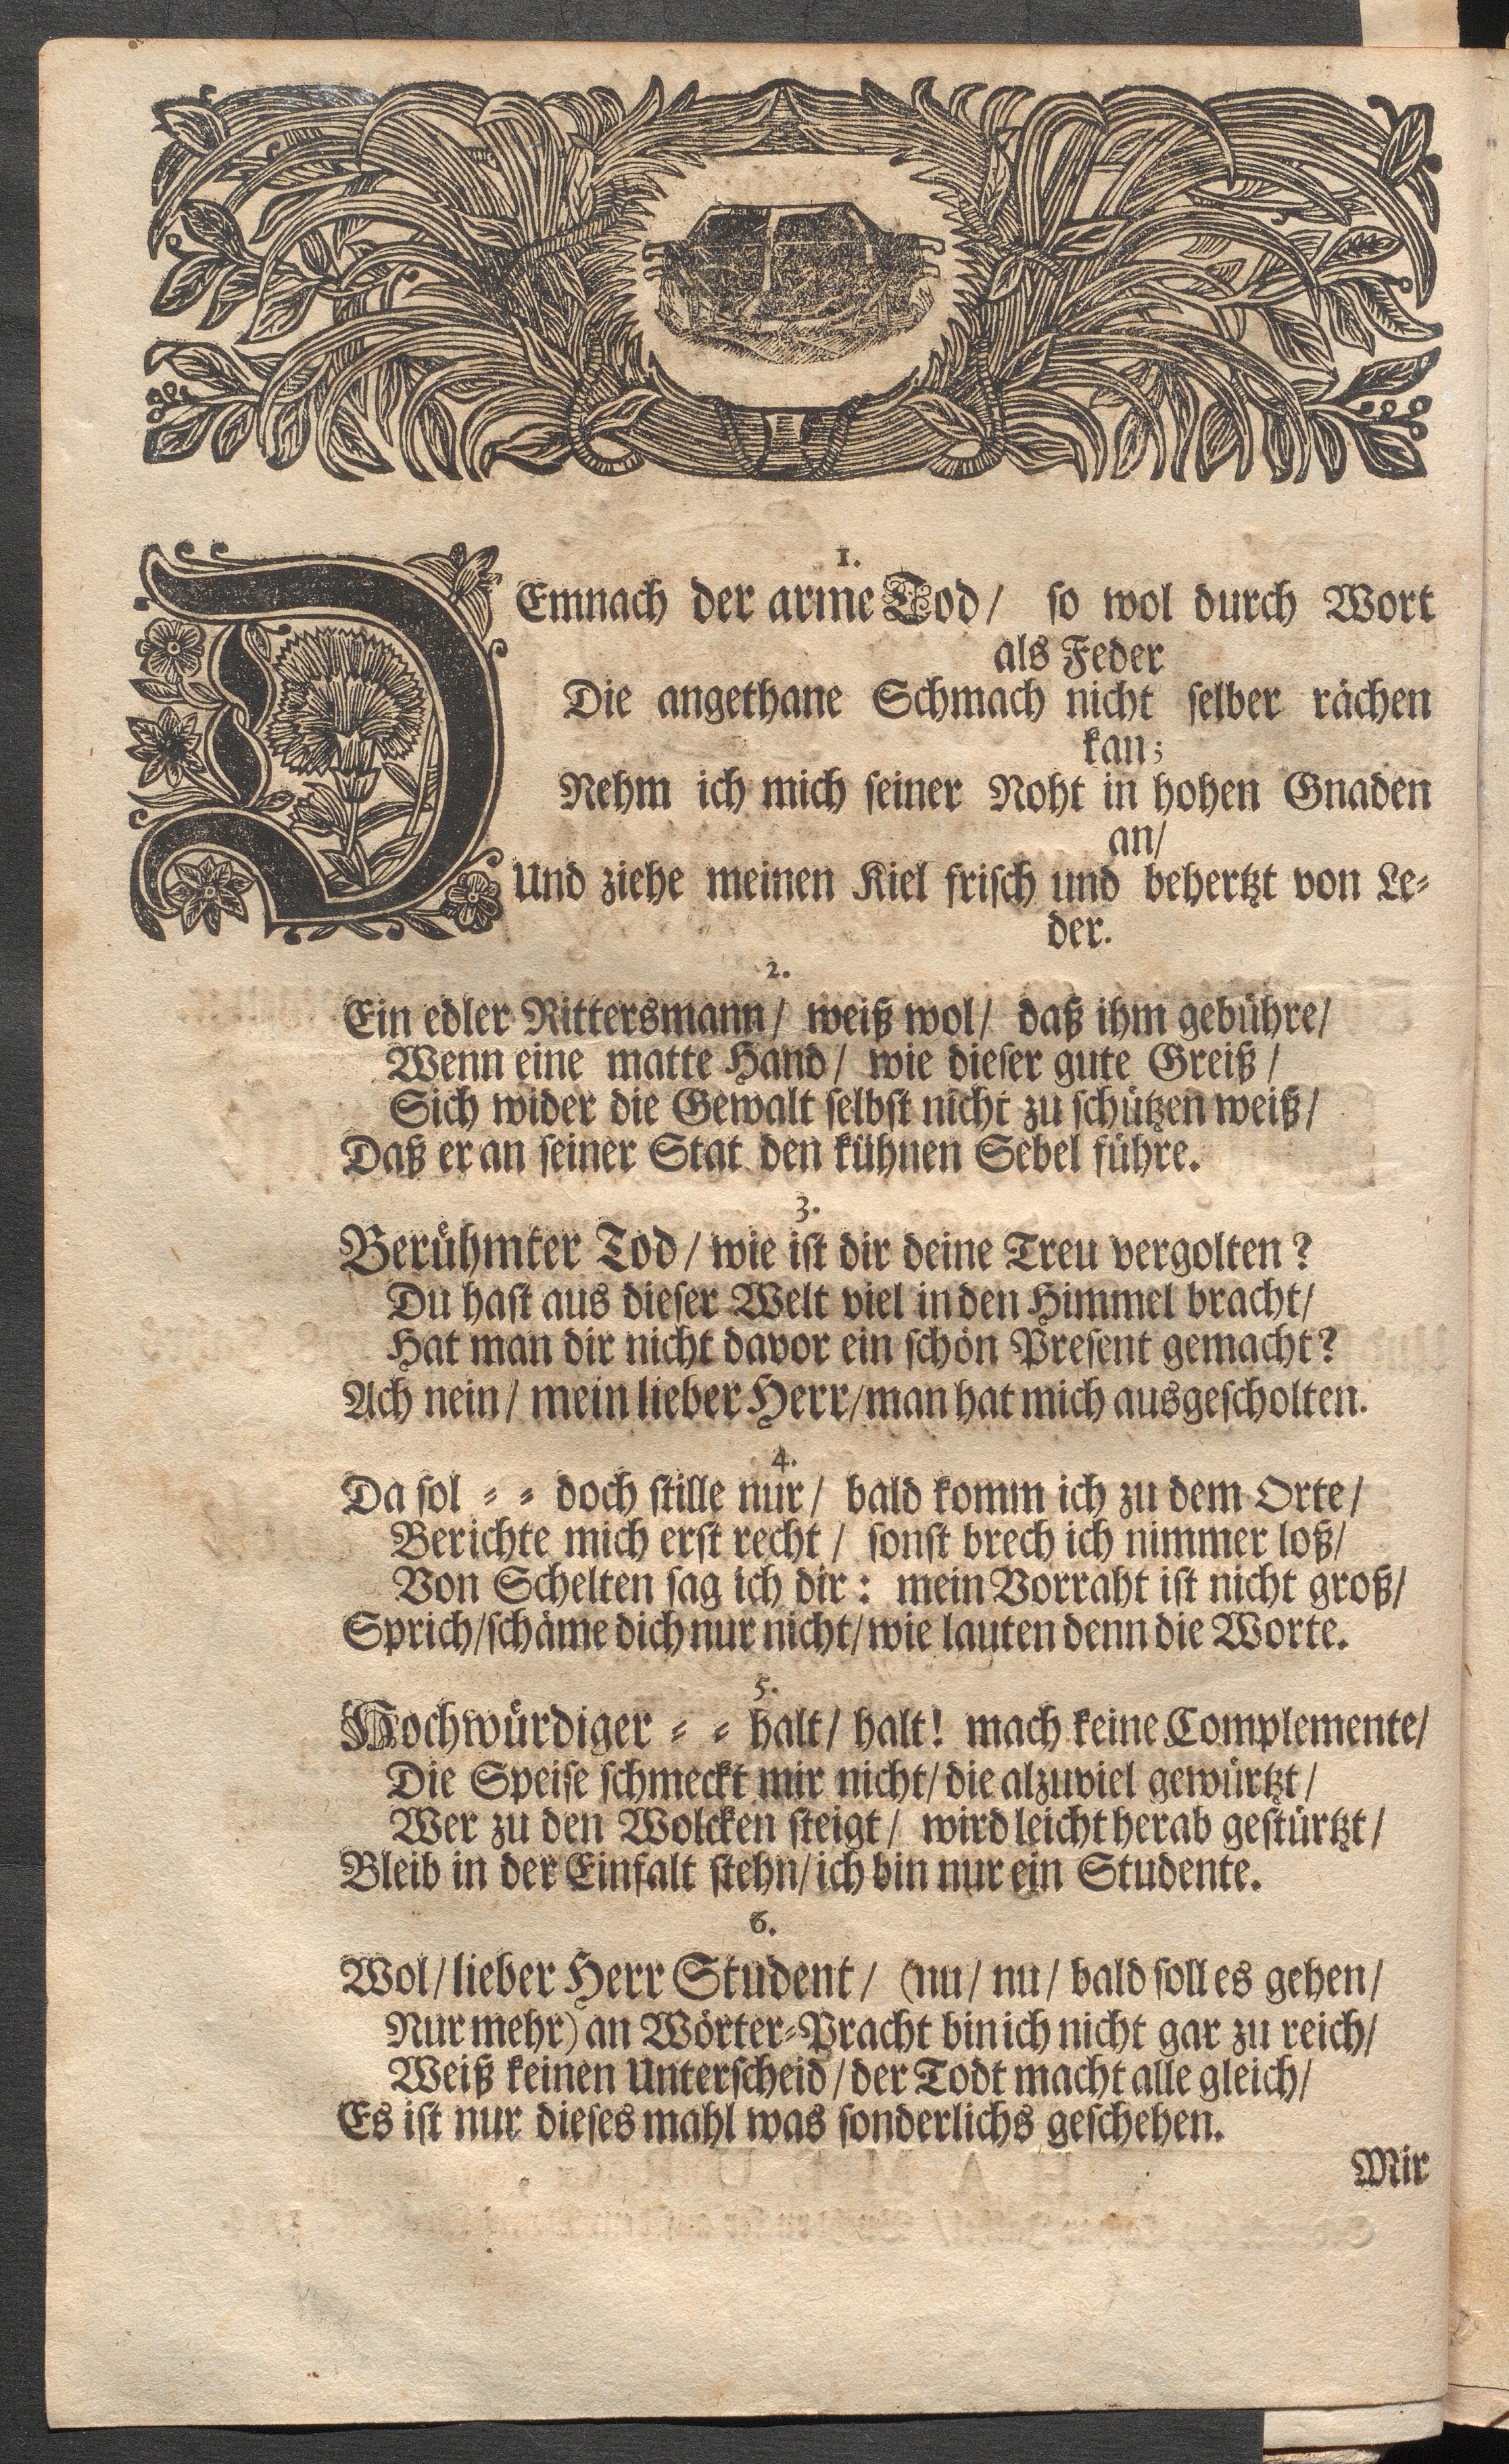 1.
DEmnach der arme Tod/ so wol durch Wort
als Feder
Die angethane Schmach nicht selber rächen
kan;
Nehm ich mich seiner Noht in hohen Gnaden
an/
Und ziehe meinen Kiel frisch und behertzt von Le-
der.
2.
Ein edler Rittersmann/ weiß wol/ daß ihm gebühre/
Wenn eine matte Hand/ wie dieser gute Greiß/
Sich wider die Gewalt selbst nicht zu schützen weiß/
Daß er an seiner Stat den kühnen Sebel führe.
3.
Berühmter Tod/ wie ist dir deine Treu vergolten?
Du hast aus dieser Welt viel in den Himmel bracht/
Hat man dir nicht davor ein schön Present gemacht?
Ach nein/ mein lieber Herr/ man hat mich ausgescholten.
4.
Da sol - - doch stille nur/ bald komm ich zu dem Orte/
Berichte mich erst recht/ sonst brech ich nimmer loß/
Von Schelten sag ich dir: mein Vorraht ist nicht groß/
Sprich/ schäme dich nur nicht/ wie lauten denn die Worte.
5.
Hochwürdiger - - halt/ halt! mach keine Complemente/
Die Speise schmeckt mir nicht/ die alzuviel gewürtzt/
Wer zu den Wolcken steigt/ wird leicht herab gestürtzt/
Bleib in der Einfalt stehn/ ich bin nur ein Studente.
6.
Wol/ lieber Herr Student/ (nu/ nu/ bald soll es gehen/
Nur mehr) an Wörter-Pracht bin ich nicht gar zu reich/
Weiß keinen Unterscheid/ der Todt macht alle gleich/
Es ist nur dieses mahl was sonderlichs geschehen.
Mir